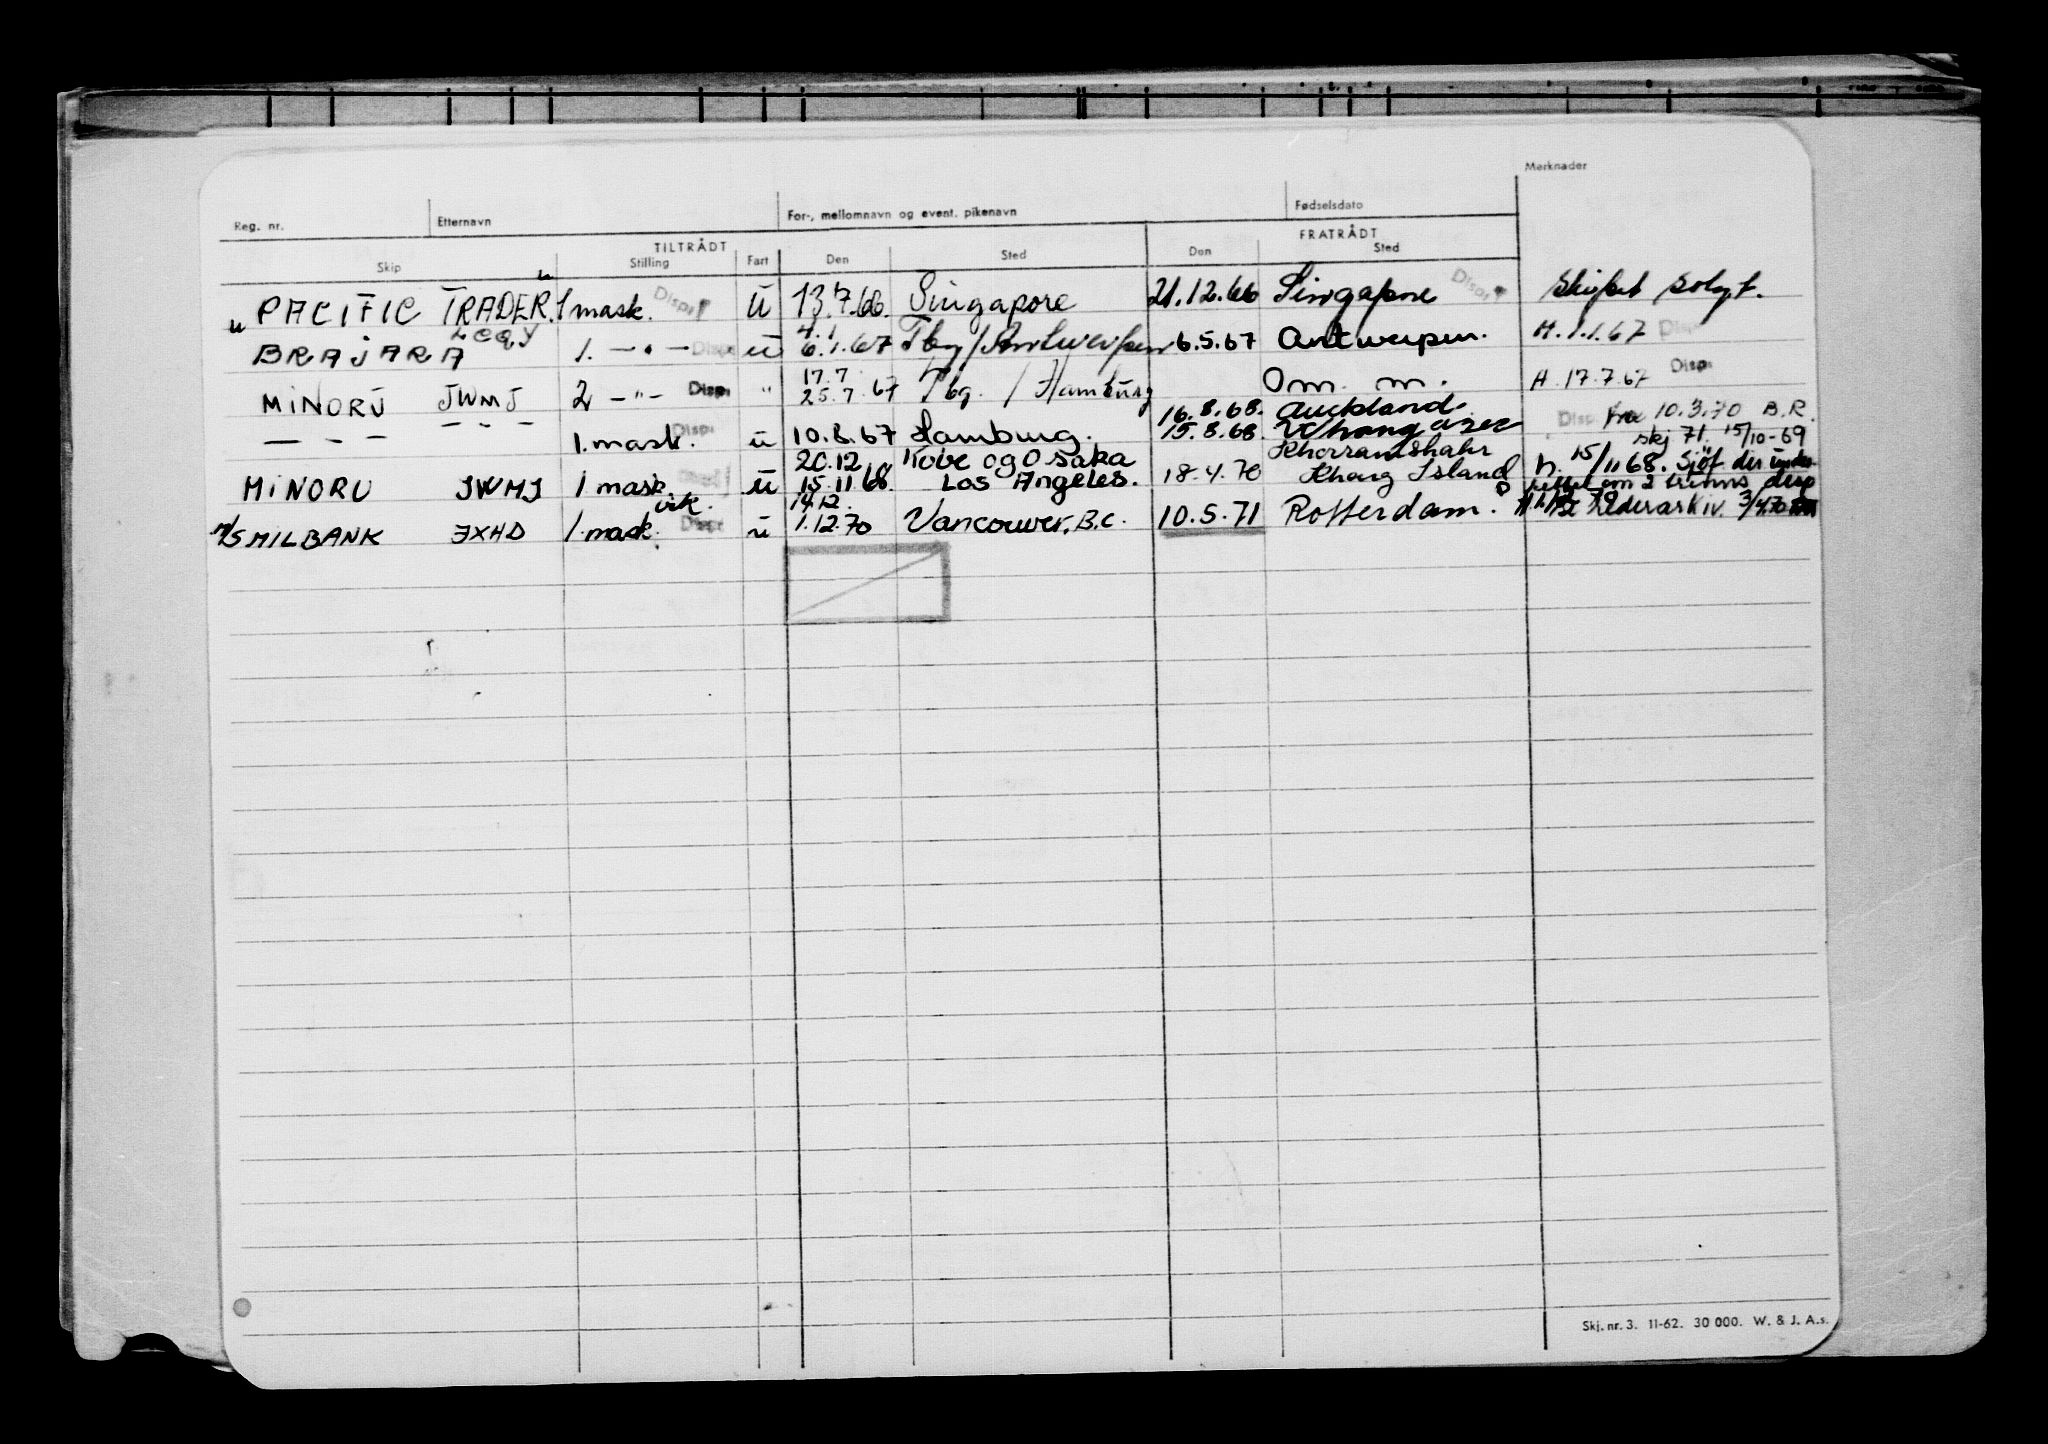 Merknader
Reg. nr. Etternavn For-, mellomnavn og event. pikenavn Fødselsdato
TILTRÅDT FRATRÅDT
Skip Stilling Fart Den Sted Den Sted
"PACIFIC TRADER." 1 mask. Disp. ü 13.7.66. Singapore 21.12.66 Singapore Disp. Skipet solgt.
LEQY 4.1
BRAJARA 1. -"- Disp. ü 6.1.67 Tbg/Antwerpen 6.5.67 Antwerpen. H.1.1.67 Disp
17.7 Disp.
MINORU JWMJ 2 -"- Disp. " 25.7.67 Tbg. / Hamburg Om. m. H.17.7.67
16.8.68. Auckland Disp fra 10.3.70 B.R.
- - - - - - 1. mask. Disp. ü 10.8.67 Hamburg. 15.8.68. skj 71. 15/10-69
20.12 Kobe og Osaka Khorramshahr
MINORU JWMJ 1 mask ü 15.11.68. Los Angeles. 18.4.70 Kharg Island h. 15/11 68. Sjöf. dir
vik. 14.12. disp
M/S MILBANK JXHD 1. mask. Disp ü 1.12.70 Vancouver, B.C. 10.5.71 Rotterdam.
Skj. nr. 3. 11-62. 30 000. W. & J. A.s.